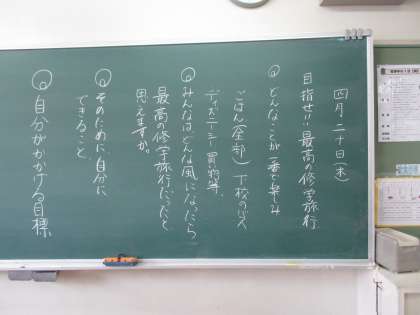 四月二十日(木)
目指せ!!最高の修学旅行
◎どんなことが一番で楽しみ
ごはん(全部) 下校のバス
ディズニーシー 買物等
◎みんなはどんな風になったら
最高の修学旅行だったと
思えますか。
◎そのために、自分に
できること
◎自分がかかげる目標